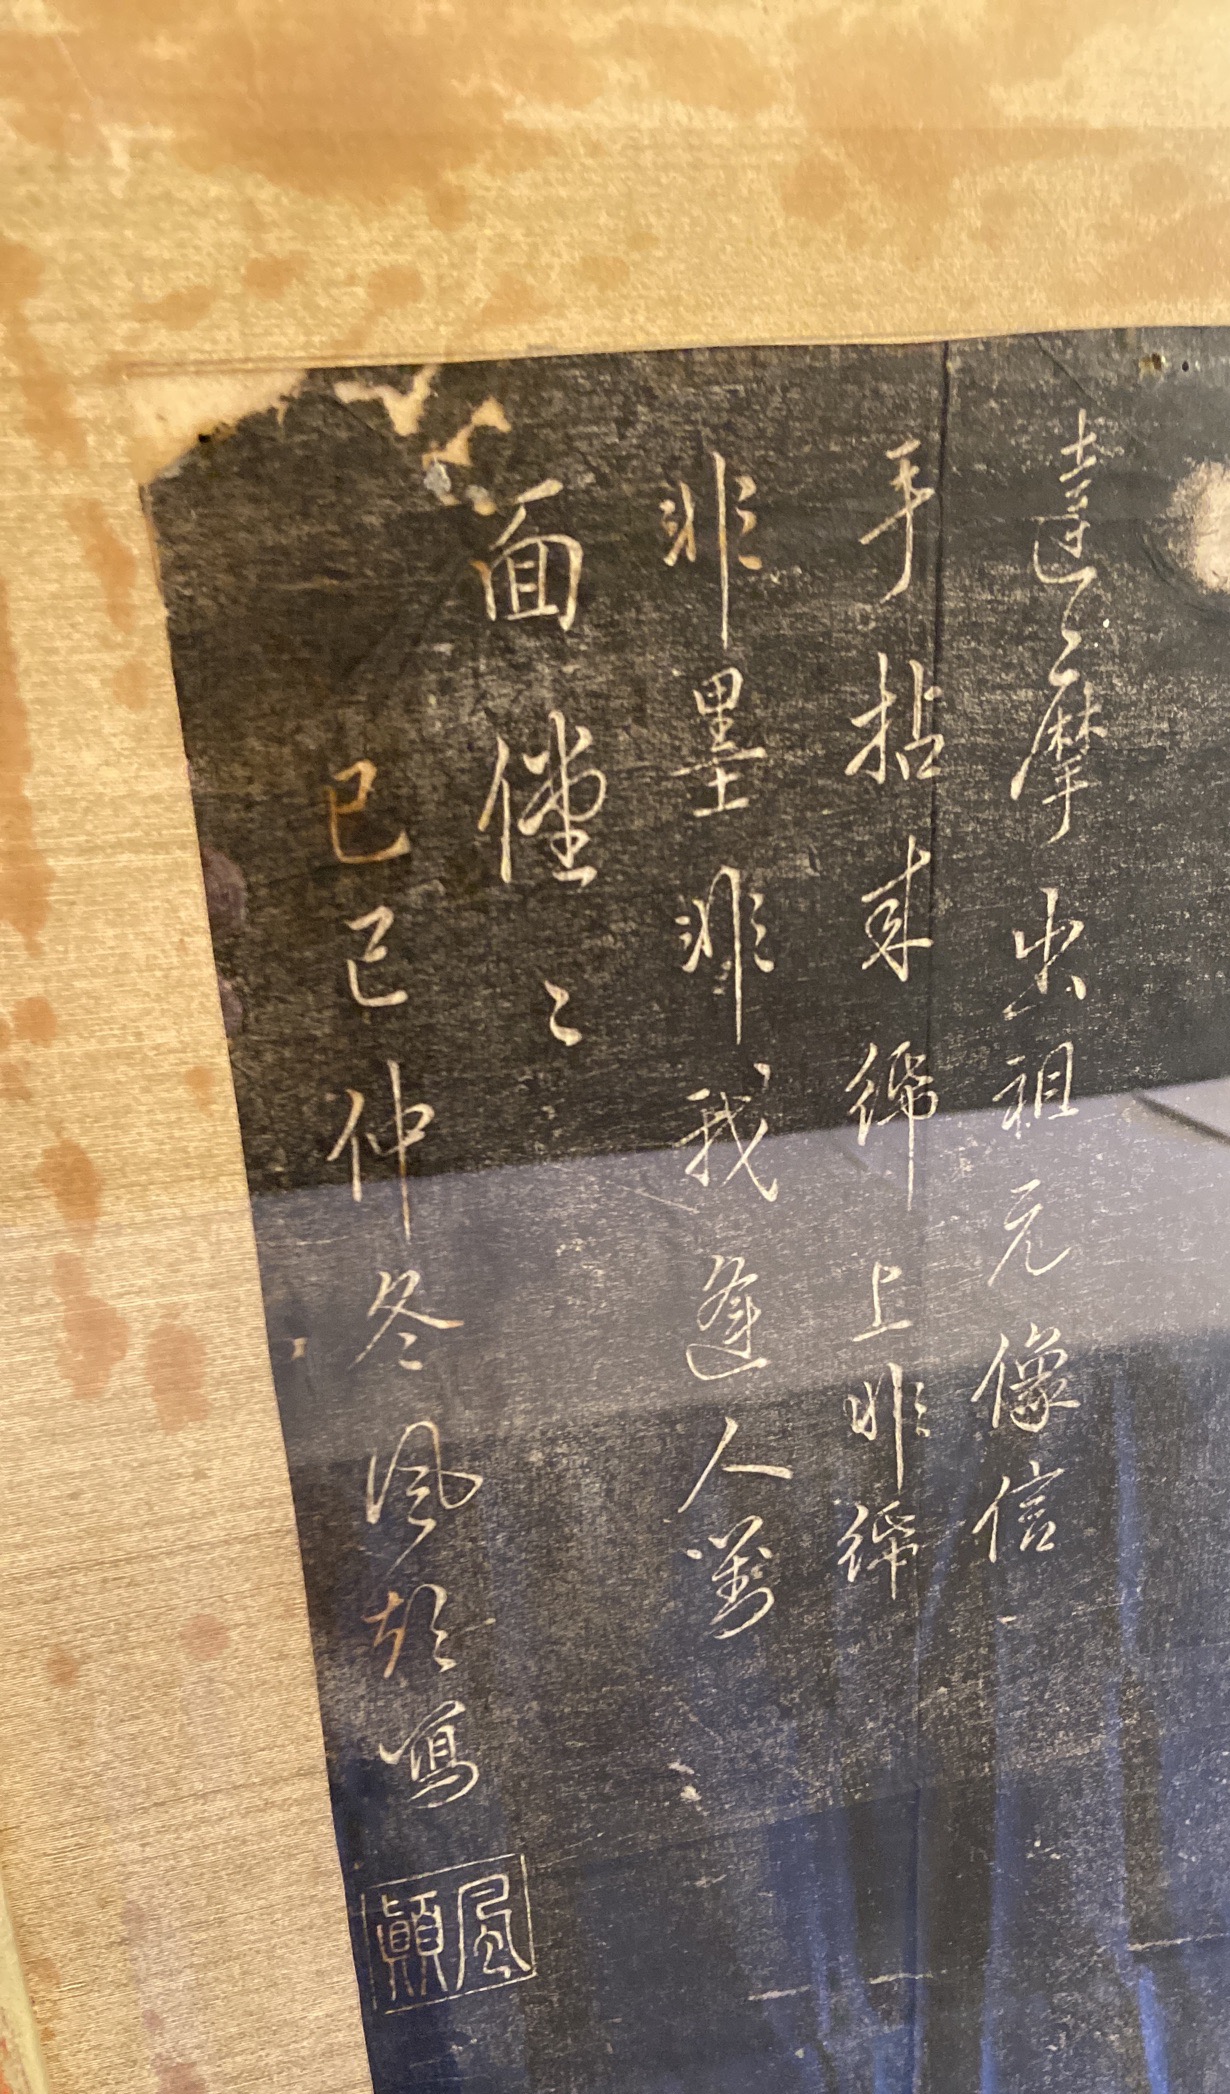 達摩出祖元像信
手拈來紙上非紙
非墨非我逢人對
面僅〻
己巳仲冬風顛寫
風顛